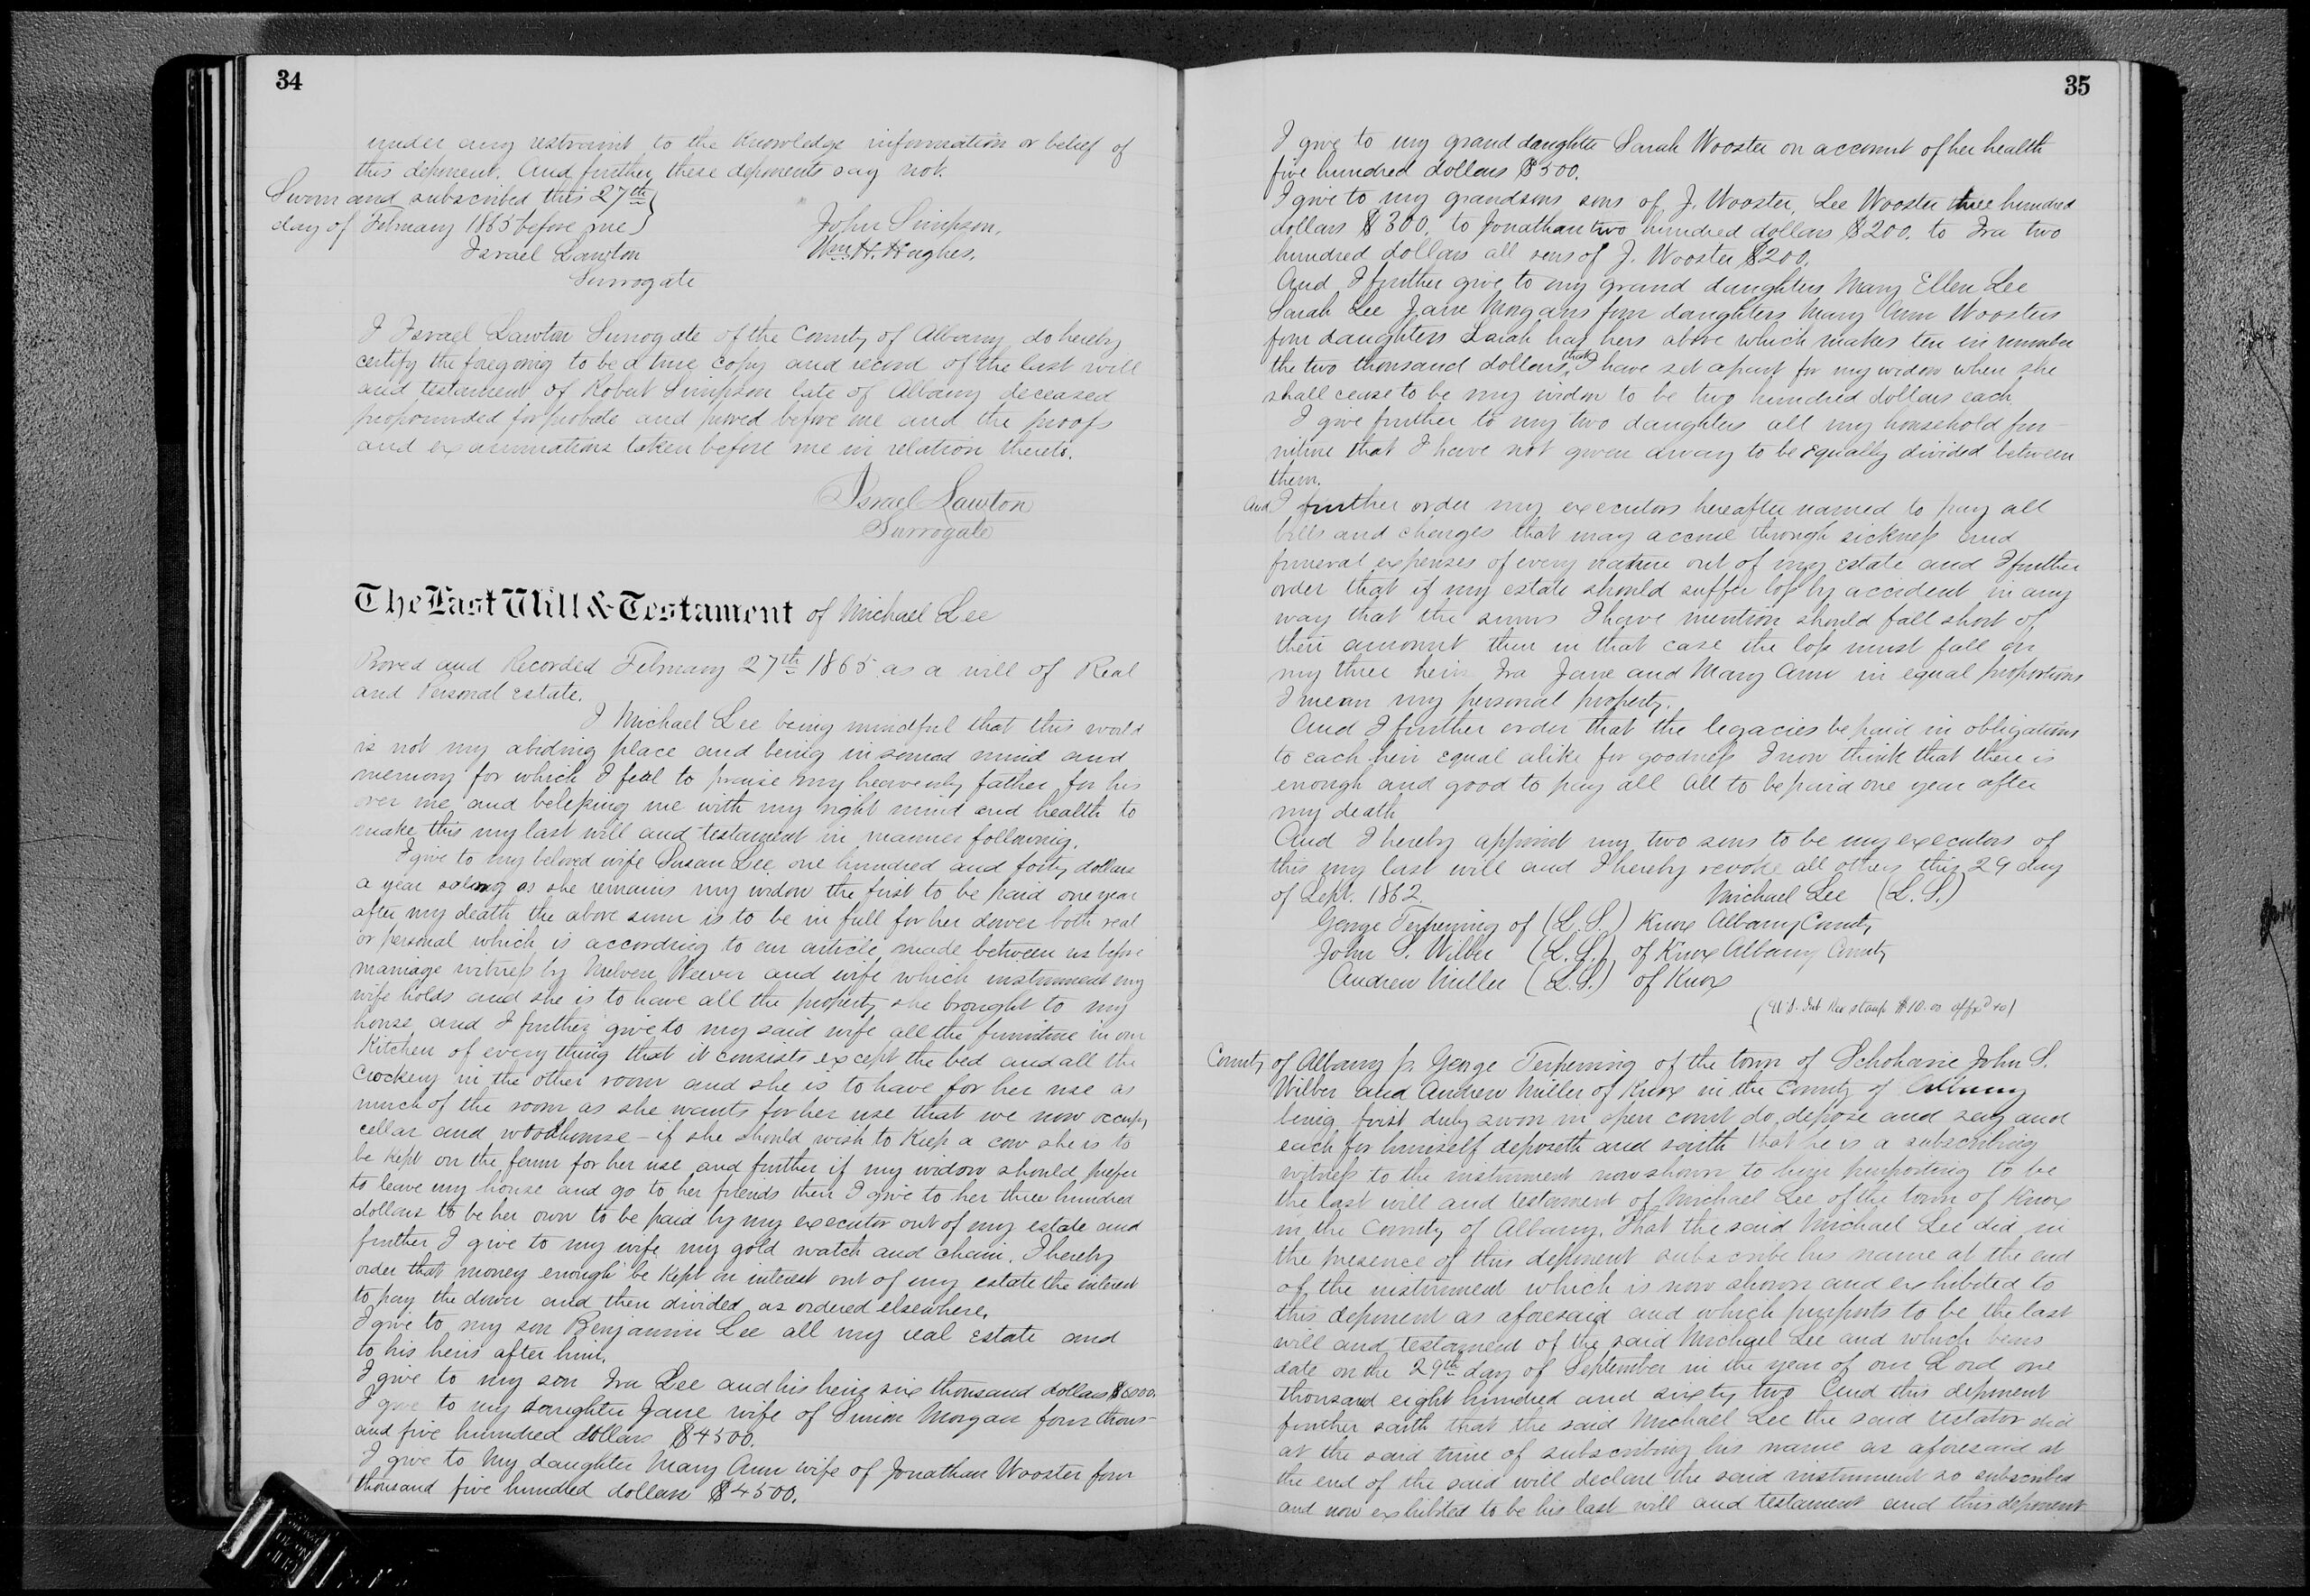 34
under any restraint to the knowledge information or belief of
this deponent. And further these deponents say not.
Sworn and subscribed this 27th
day of February 1865 before me
John Simpson.
Israel Lawton
Wm. H. Hughes.
Surrogate
I Israel Lawton Surrogate of the County of Albany do hereby
certify the foregoing to be a true copy and record of the last will
and testament of Robert Simpson late of Albany deceased
propounded for probate and proved before me and the proofs
and examinations taken before me in relation thereto.
Israel Lawton
Surrogate
The Last Will & Testament of Michael Lee
Proved and Recorded February 27th 1865 as a will of Real
and Personal Estate.
I Michael Lee being mindful that this world
is not my abiding place and being in sound mind and
memory for which I feal to praise my heavenly father for his
over me and belessing me with my right mind and health to
make this my last will and testament in manner following.
I give to my beloved wife Susan Lee one hundred and forty dollars
a year solong as she remains my widow the first to be paid one year
after my death the above sum is to be in full for her dower both real
or personal which is according to an article made between us before
marriage witness by Weever and wife which instrument my
wife holds and she is to have all the property she brought to my
house and I further give to my said wife all the furniture in our
Kitchen of every thing that it consists except the bed and all the
Crockery in the other room and she is to have for her use as
much of the room as she wants for her use that we now occupy
cellar and woodhouse - if she should wish to keep a cow she is to
be kept on the farm for her use and further if my widow should prefer
to leave my house and go to her friends then I give to her three hundred
dollars to be her own to be paid by my executor out of my estate and
further I give to my wife my gold watch and chain. I hereby
order that money enough be kept on interest out of my estate the interest
to pay the dower and then divided as ordered elsewhere.
I give to my son Benjamin Lee all my real estate and
to his heirs after him.
I give to my son Ira Lee and his heirs six thousand dollars $6000.
I give to my daughter Jane wife of Simion Morgan four thous-
and five hundred dollars $4500.
I give to my daughter Mary Ann wife of Jonathan Wooster four
thousand five hundred dollars $4500.
35
I give to my grand daughter Sarah Wooster on account of her health
five hundred dollars $500.
I give to my grandsons sons of J. Wooster, Lee Wooster three hundred
dollars $300. to Jonathan two hundred dollars $200. to Ira two
hundred dollars all sons of J. Wooster $200.
And I further give to my grand daughters Mary Ellen Lee
Sarah Lee Jane Morgans four daughters Mary Ann Woosters
four daughters Sarah has hers above which makes ten in number
the two thousand dollars that I have set apart for my widow when she
shall cease to be my widow to be two hundred dollars each
I give further to my two daughters all my household fur-
niture that I have not given away to be equally divided between
them.
And I further order my executors hereafter named to pay all
bills and charges that may accrue through sickness and
funeral expenses of every nature out of my estate and I further
order that if my estate should suffer loss by accident in any
way that the sums I have mention should fall short of
their amount then in that case the loss must fall on
my three heirs Ira Jane and Mary Ann in equal proportions
I mean my personal property.
And I further order that the legacies be paid in obligations
to each heir equal alike for goodness I now think that there is
enough and good to pay all all to be paid one year after
my death
And I hereby appoint my two sons to be my executors of
this my last will and I hereby revoke all others this 29 day
of Sept. 1862. Michael Lee (L.S.)
George Terpening of (L.S.) Knox Albany County
John S. Wilber (L.S.) of Knox Albany County
Andrew Miller (L.S.) of Knox
(U.S. Int Rev stamp $10.00 affxd to)
County of Albany ss. George Terpening of the town of Schoharie John S.
Wilber and Andrew Miller of Knox in the County of Albany
being first duly sworn in open court do depose and say and
each for himself deposeth and saith that he is a subscribing
witness to the instrument now shown to him purporting to be
the last will and testament of Michael Lee of the town of Knox
in the County of Albany. That the said Michael Lee did in
the presence of this deponent subscribe his name at the end
of the instrument which is now shown and exhibited to
this deponent as aforesaid and which purports to be the last
will and testament of the said Michael Lee and which bears
date on the 29th day of September in the year of our Lord one
thousand eight hundred and sixty two And this deponent
further saith that the said Michael Lee the said testator did
at the said time of subscribing his name as aforesaid at
the end of the said will declare the said instrument so subscribed
and now exhibited to be his last will and testament and this deponent